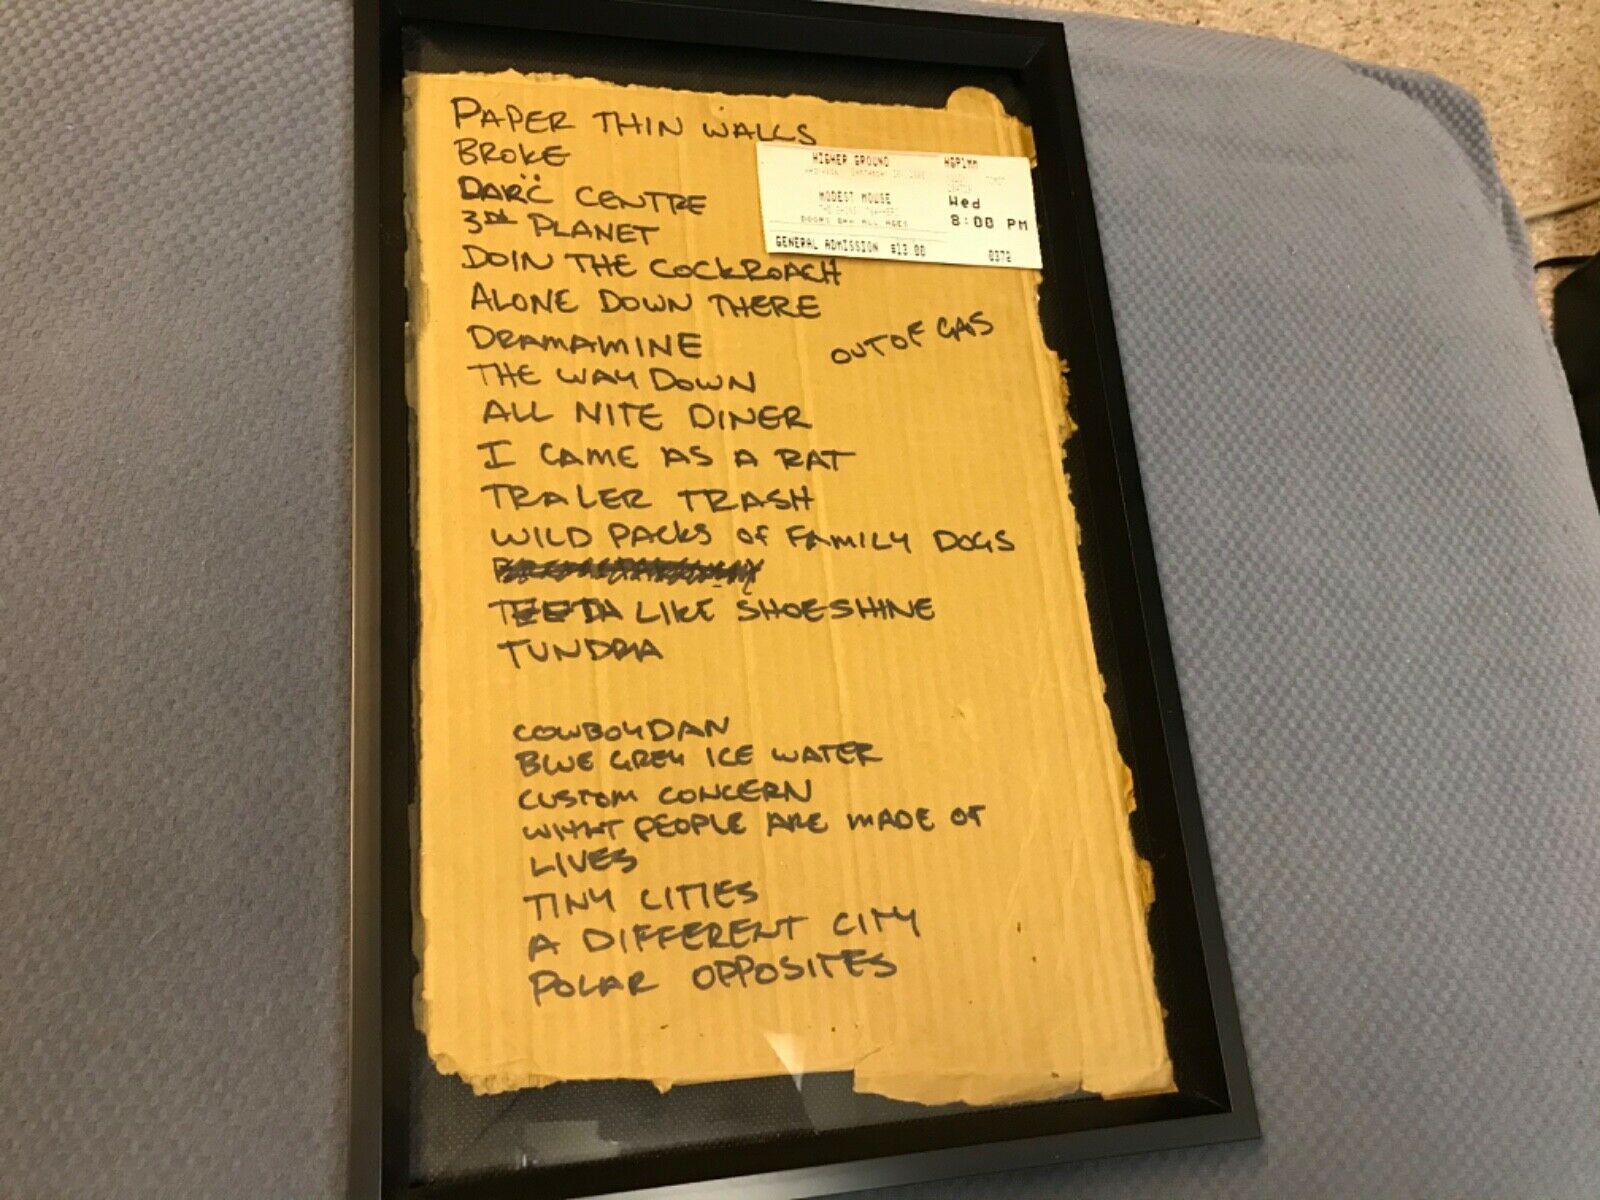 PAPER THIN WALLS
BROKE
DARC̈ CENTRE
3RD PLANET
DOIN THE COCKROACH
ALONE DOWN THERE
DRAMAMINE
OUT OF GAS
THE WAY DOWN
ALL NITE DINER
I CAME AS A RAT
TRALER TRASH
WILD PACKS OF FAMILY DOGS
TEETH LIKE SHOESHINE
TUNDRA
COWBOY DAN
BLUE GREY ICE WATER
CUSTOM CONCERN
WHAT PEOPLE ARE MADE OF
LIVES
TINY CITIES
A DIFFERENT CITY
POLAR OPPOSITES
HIGHER GROUND
MODEST MOUSE
DOORS 8PM ALL AGES
GENERAL ADMISSION $13.00
HGP1MM
Wed
8:00 PM
0372